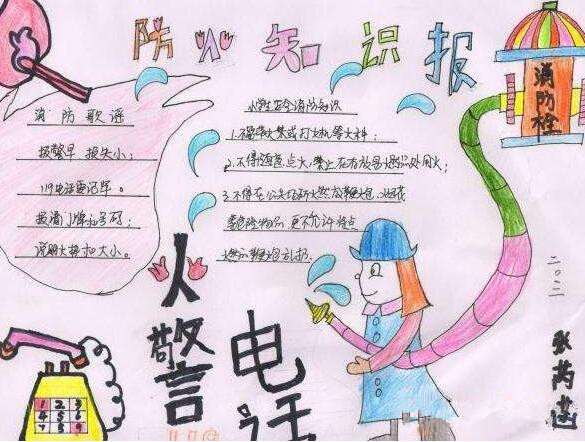 防火知识报
消防歌谣
报警早 损失小;
119电话要记牢。
报清门牌和号码;
说明火势和大小。
小学生 消防知识
1.不要带火柴或打火机等火种;
2.不得随意点火,禁止在有放易 处用火;
3.不得在公共场所燃放鞭炮,
危险物品,更不允许将点
燃的鞭炮乱扔。
火警电话
119
消防栓
二〇一一
张芮
1 2 3
4 5 6
7 8 9